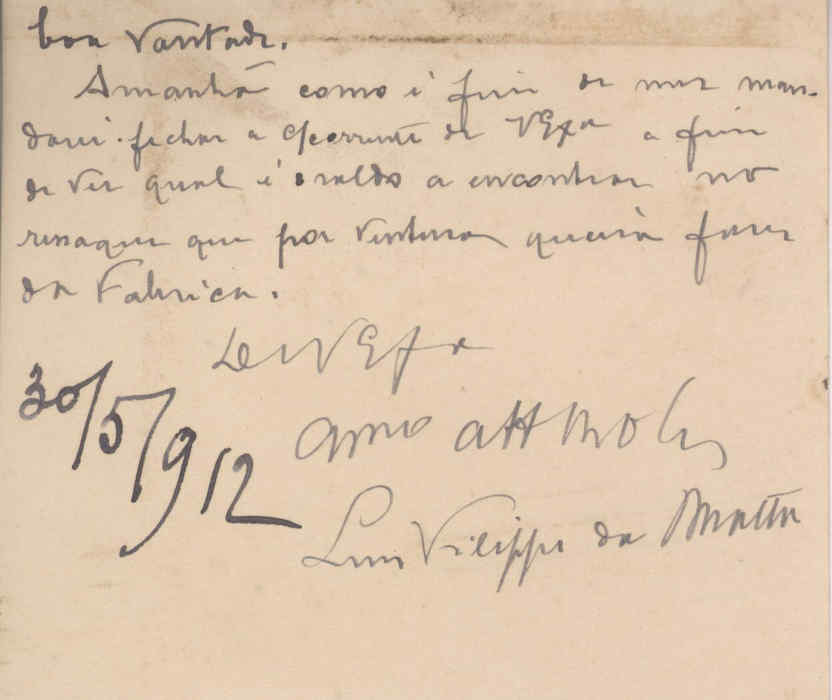 boa vontade.
Amanhã como é fim de mez man-
darei fechar a c/corrente de VExa a fim
de ver qual é o saldo a encontrar no
resaque que por ventura queira fazer
da Fabrica.
De VExa
30/5/912
Amo att
Luis Filippe da Matta